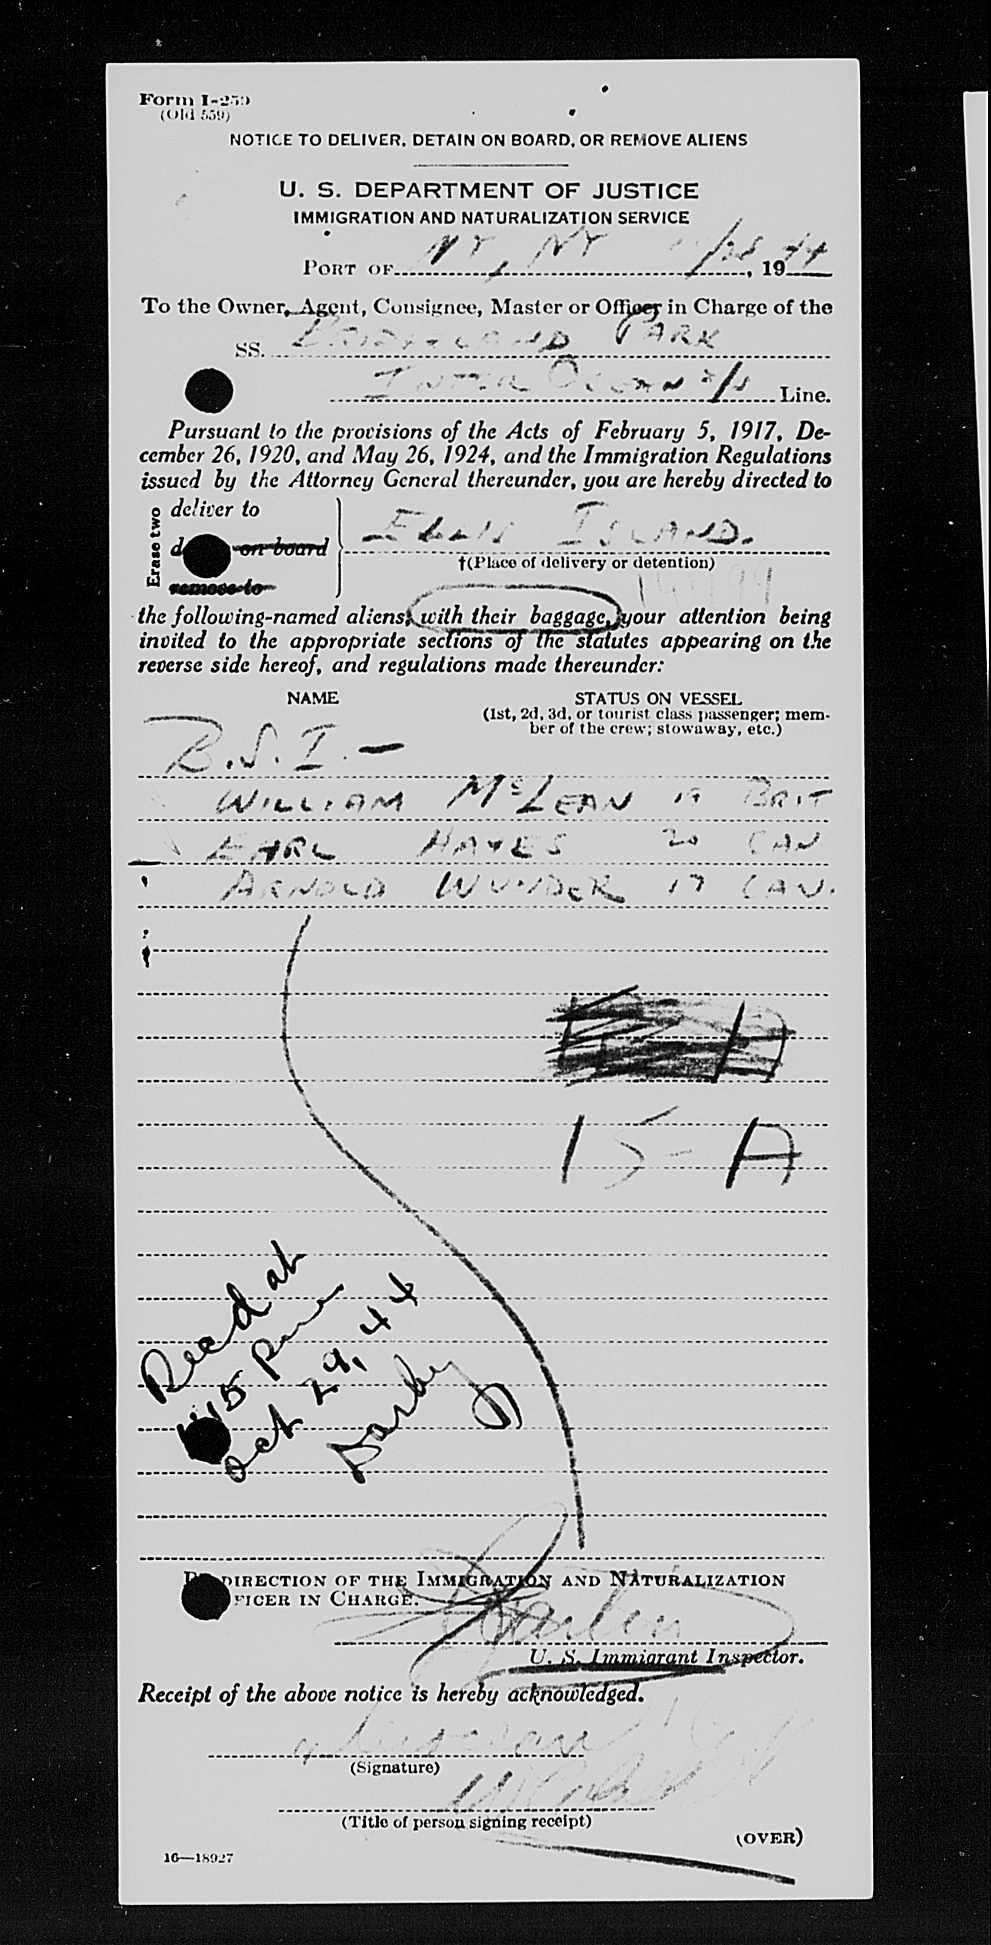 Form I-259
(Old 559)
NOTICE TO DELIVER, DETAIN ON BOARD, OR REMOVE ALIENS
U. S. DEPARTMENT OF JUSTICE
IMMIGRATION AND NATURALIZATION SERVICE
PORT OF NY, NY /28, 1944
To the Owner, Agent, Consignee, Master or Officer in Charge of the
SS. PARK
INTER OCEAN S/S Line.
Pursuant to the provisions of the Acts of February 5, 1917, De-
cember 26, 1920, and May 26, 1924, and the Immigration Regulations
issued by the Attorney General thereunder, you are hereby directed to
Erase two
deliver to
on board
remove to
ELLIS ISLAND.
†(Place of delivery or detention)
the following-named aliens, with their baggage, your attention being
invited to the appropriate sections of the statutes appearing on the
reverse side hereof, and regulations made thereunder:
NAME STATUS ON VESSEL
(1st, 2d, 3d, or tourist class passenger; mem-
ber of the crew; stowaway, etc.)
B.S.I. —
WILLIAM McLEAN 19 BRIT
EARL HAYES 20 CAN
ARNOLD WUNDER 17 CAN.
15-A
Recd at
15 pm
Oct 29, 44
Darby
DIRECTION OF THE IMMIGRATION AND NATURALIZATION
FICER IN CHARGE.
U. S. Immigrant Inspector.
Receipt of the above notice is hereby acknowledged.
(Signature)
(Title of person signing receipt)
(OVER)
16—18927